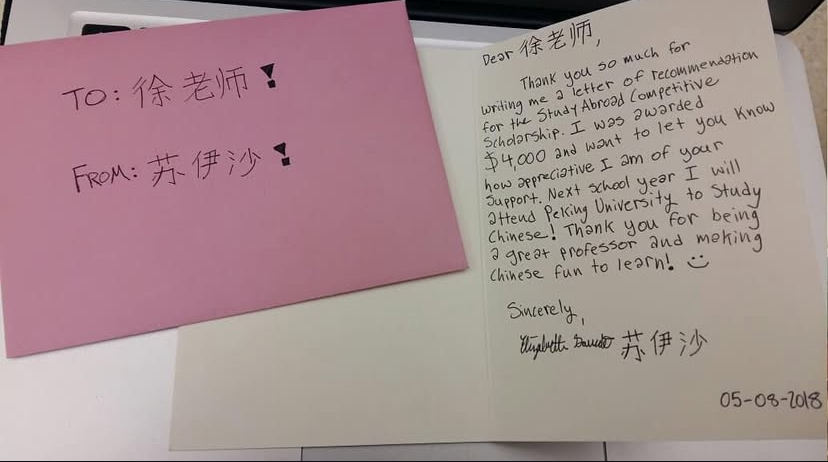 TO: 徐老师!
FROM: 苏伊沙!
Dear 徐老师,
Thank you so much for
writing me a letter of recommendation
for the Study Abroad Competitive
Scholarship. I was awarded
$4,000 and want to let you know
how appreciative I am of your
support. Next school year I will
attend Peking University to study
Chinese! Thank you for being
a great professor and making
Chinese fun to learn! :)
Sincerely,
Elizabeth 苏伊沙
05-08-2018